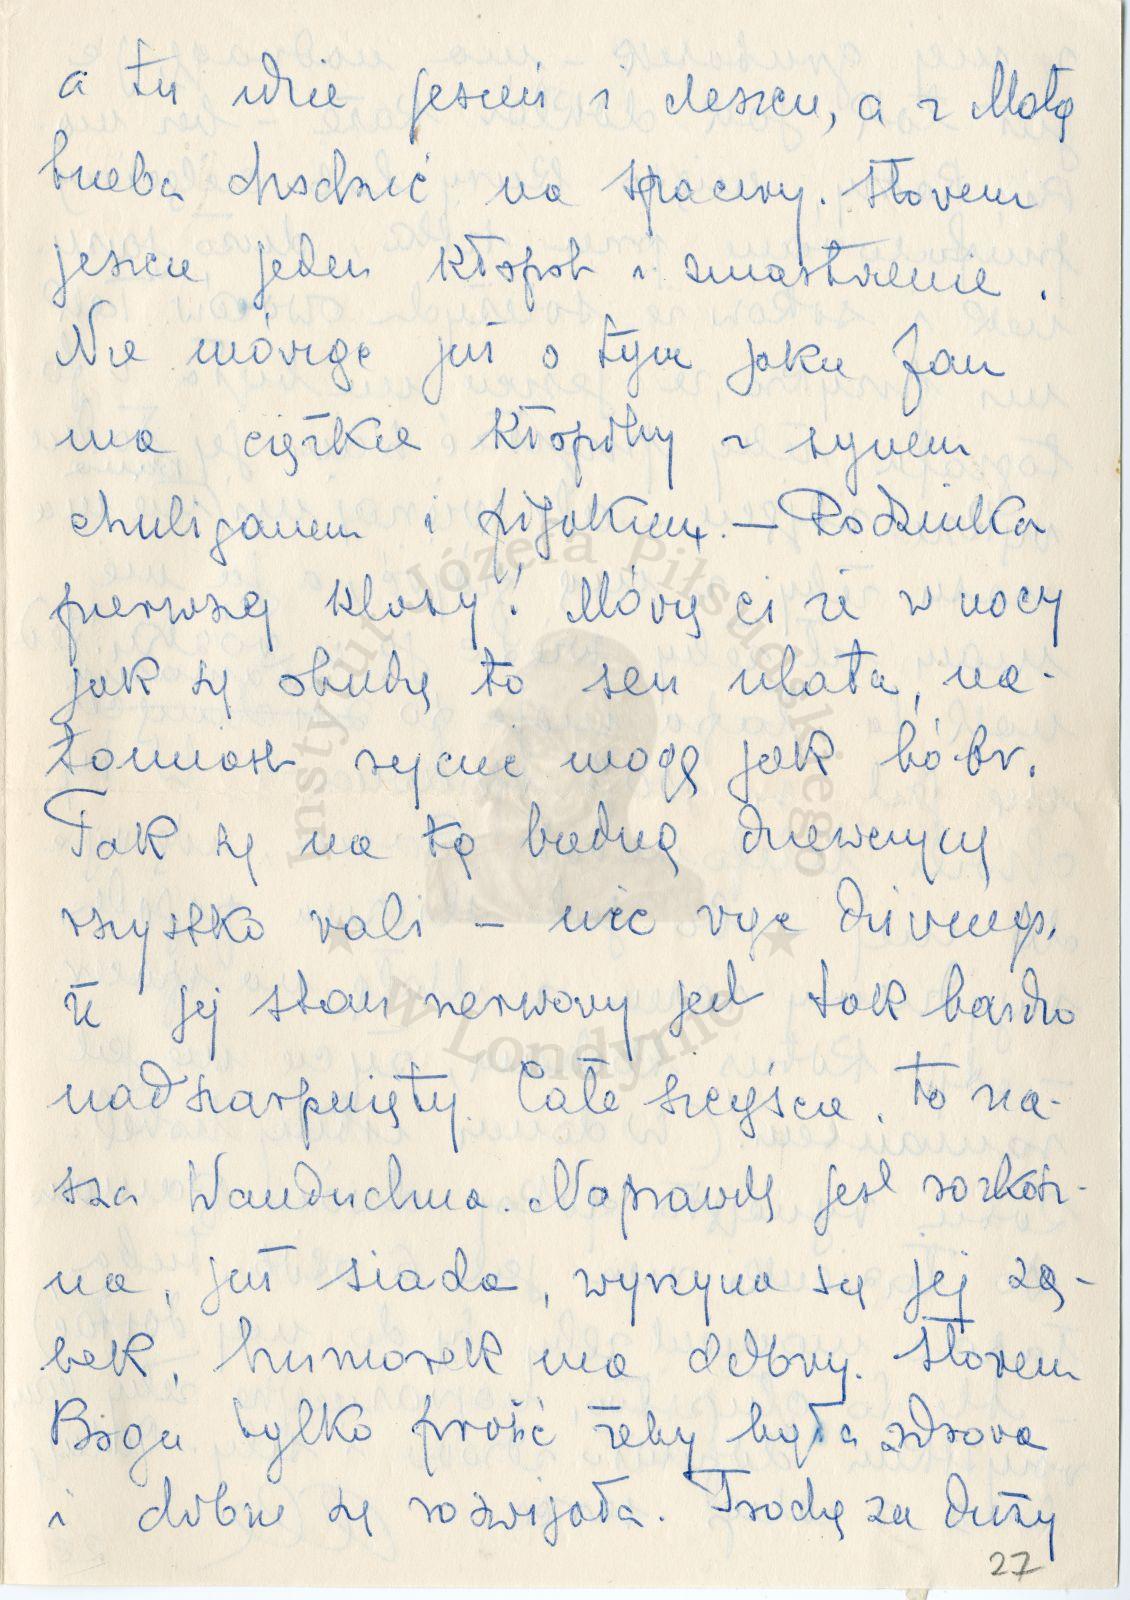 a tu idzie jesień i deszcu, a z Małą
trzeba chodzić na spacery. Słowem
jeszcze jeden kłopot i zmartwienie.
Nie mówiąc już o tym jakie Jan
ma ciężkie kłopoty z synem
chuliganem i pijakiem. — Rodzinka
pierwszej klasy! Mówię ci że w nocy
jak się obudzę to sen ulata, na-
tomiast ryczeć mogę jak bóbr.
Tak się na tę biedną dziewczynę
wszystko wali – nic więc dziwnego,
że jej stan nerwowy jest tak bardzo
nadszarpnięty. Całe szczęście, to na-
sza Wanduchna. Naprawdę jest rozkosz-
na, już siada, wyrzyna się jej zą-
bek, humorek ma dobry. Słowem
Boga tylko prosić żeby była zdrowa
i dobrze się rozwijała. Trochę za duży
27
Instytut Józefa Piłsudskiego
w Londynie